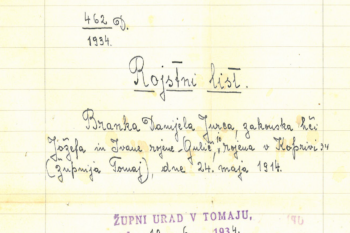 462 D.
1934.
Rojstni list.
Branka Danijela Jurca, zakonska hči
Jožefa in Ivane rojene Gulič, rojena v Koprivi 34
(župnija Tomaj), dne 24. maja 1914.
ŽUPNI URAD V TOMAJU,
1934.